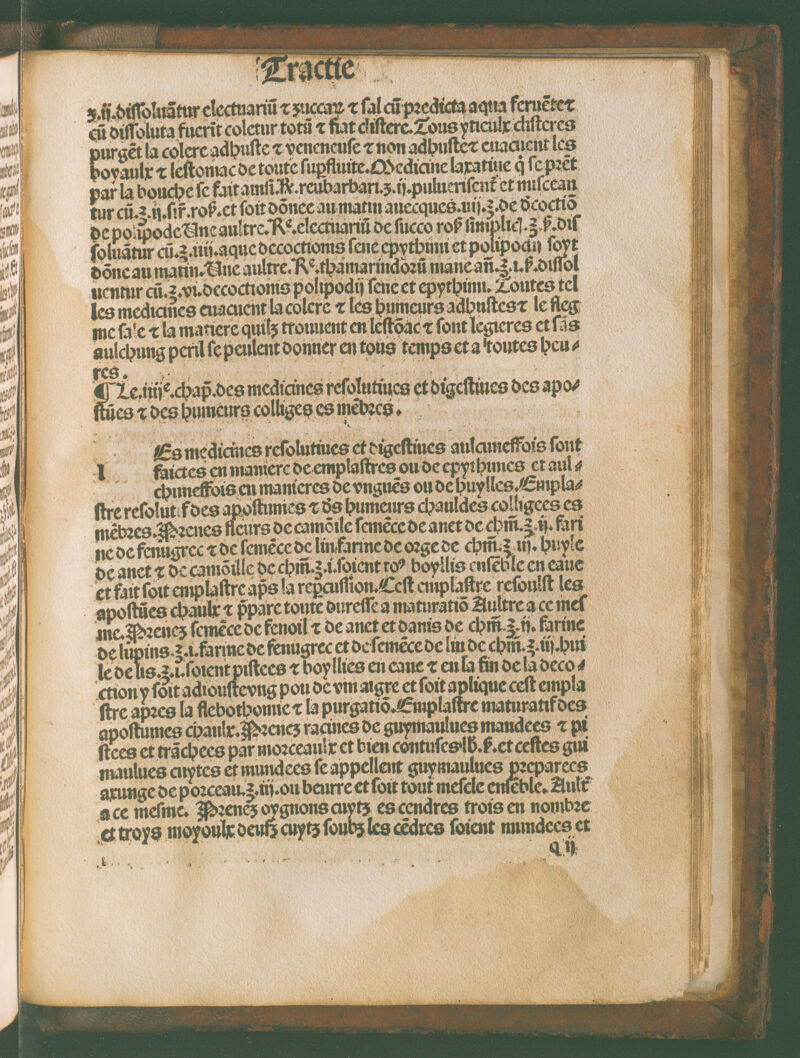 Tractie
ʒ.ij.dissoluãtur electuariũ ⁊ zuccaꝝ ⁊ sal cũ predicta aqua feruẽte⁊
cũ dissoluta fuerit coletur totũ ⁊ fiat clistere.Tous yticulx clisteres
purgẽt la colere adhuste ⁊ veneneuse ⁊ non adhuste⁊ euacuent les
boyaulx ⁊ lestomac de toute supfluite.Medicine laxatiue q̃ se prẽt
par la bouche se fait ainsi.℞.reubarbari.ʒ.ij.puluerisent̃ et miscean
tur cũ.℥.ij.sir̃.ros̃.et soit dõnee au matin auecques.iiij.℥.de d̃coctiõ
de polipode Une aultre.Rᵉ.electuariũ de succo ros̃ simplicĩ.℥.s̃.dis
soluãtur cũ.℥.iiij.aque decoctionis sene epythimi et polipodij soyt
dõne au matin.Une aultre.Rᵉ.thamarindorũ mane añ.℥.i.s̃.dissol
uentur cũ.℥.vi.decoctionis polipodij sene et epythimi. Toutes tel
les medicines euacuent la colere ⁊ les humeurs adhustes⁊ le fleg
me sale ⁊ la matiere quilz trouuent en lestõac ⁊ sont legieres et sãs
aulchung peril se peulent donner en tous temps et a toutes heu⸗
res.
¶ Le.iiijᵉ.chap̃.des medicines resolutiues et digestiues des apo⸗
stũes ⁊ des humeurs colliges es mẽbres.
l Es medicines resolutiues et digestiues aulcuneffois sont
faictes en maniere de emplastres ou de epythimes et aul⸗
chuneffois en manieres de vnguẽs ou de huylles.Empla⸗
stre resolutif des apostumes ⁊ d̃s humeurs chauldes colligees es
mẽbres.Prenes fleurs de camõile semẽce de anet de chm̃.℥.ij. fari
ne de fenugrec ⁊ de semẽce de lin farine de orge de chm̃.℥.iij. huyle
de anet ⁊ de camõille de chm̃.℥.i.soient toꝰ boyllis ensẽble en eaue
et fait soit emplastre ap̃s la repcussion.Cest emplastre resoulst les
apostũes chaulx ⁊ p̃pare toute duresse a maturatiõ Aultre a ce mes
me.Prenez semẽce de fenoil ⁊ de anet et danis de chm̃.℥.ij. farine
de lupins.℥.i.farine de fenugrec et de semẽce de lin de chm̃.℥.iij.hui
le de lis.℥.i.soient pistees ⁊ boyllies en eaue ⁊ en la fin de la deco⸗
ction y soit adioustevng pou de vin aigre et soit aplique cest empla
stre apres la flebothomie ⁊ la purgatiõ.Emplastre maturatif des
apostumes chaulx.Prenez racines de guymaulues mandees ⁊ pi
stees et trãchees par morceaulx et bien contuses lb̃.s̃.et cestes gui
maulues cuytes et mundees se appellent guymaulues preparees
axunge de porceau.℥.iij.ou beurre et soit tout mesle ensẽble. Ault̃
a ce mesme. Prenẽs oygnons cuytz es cendres trois en nombre
et troys moyoulx deufz cuytz soubz les cẽdres soient mundees et
q ij